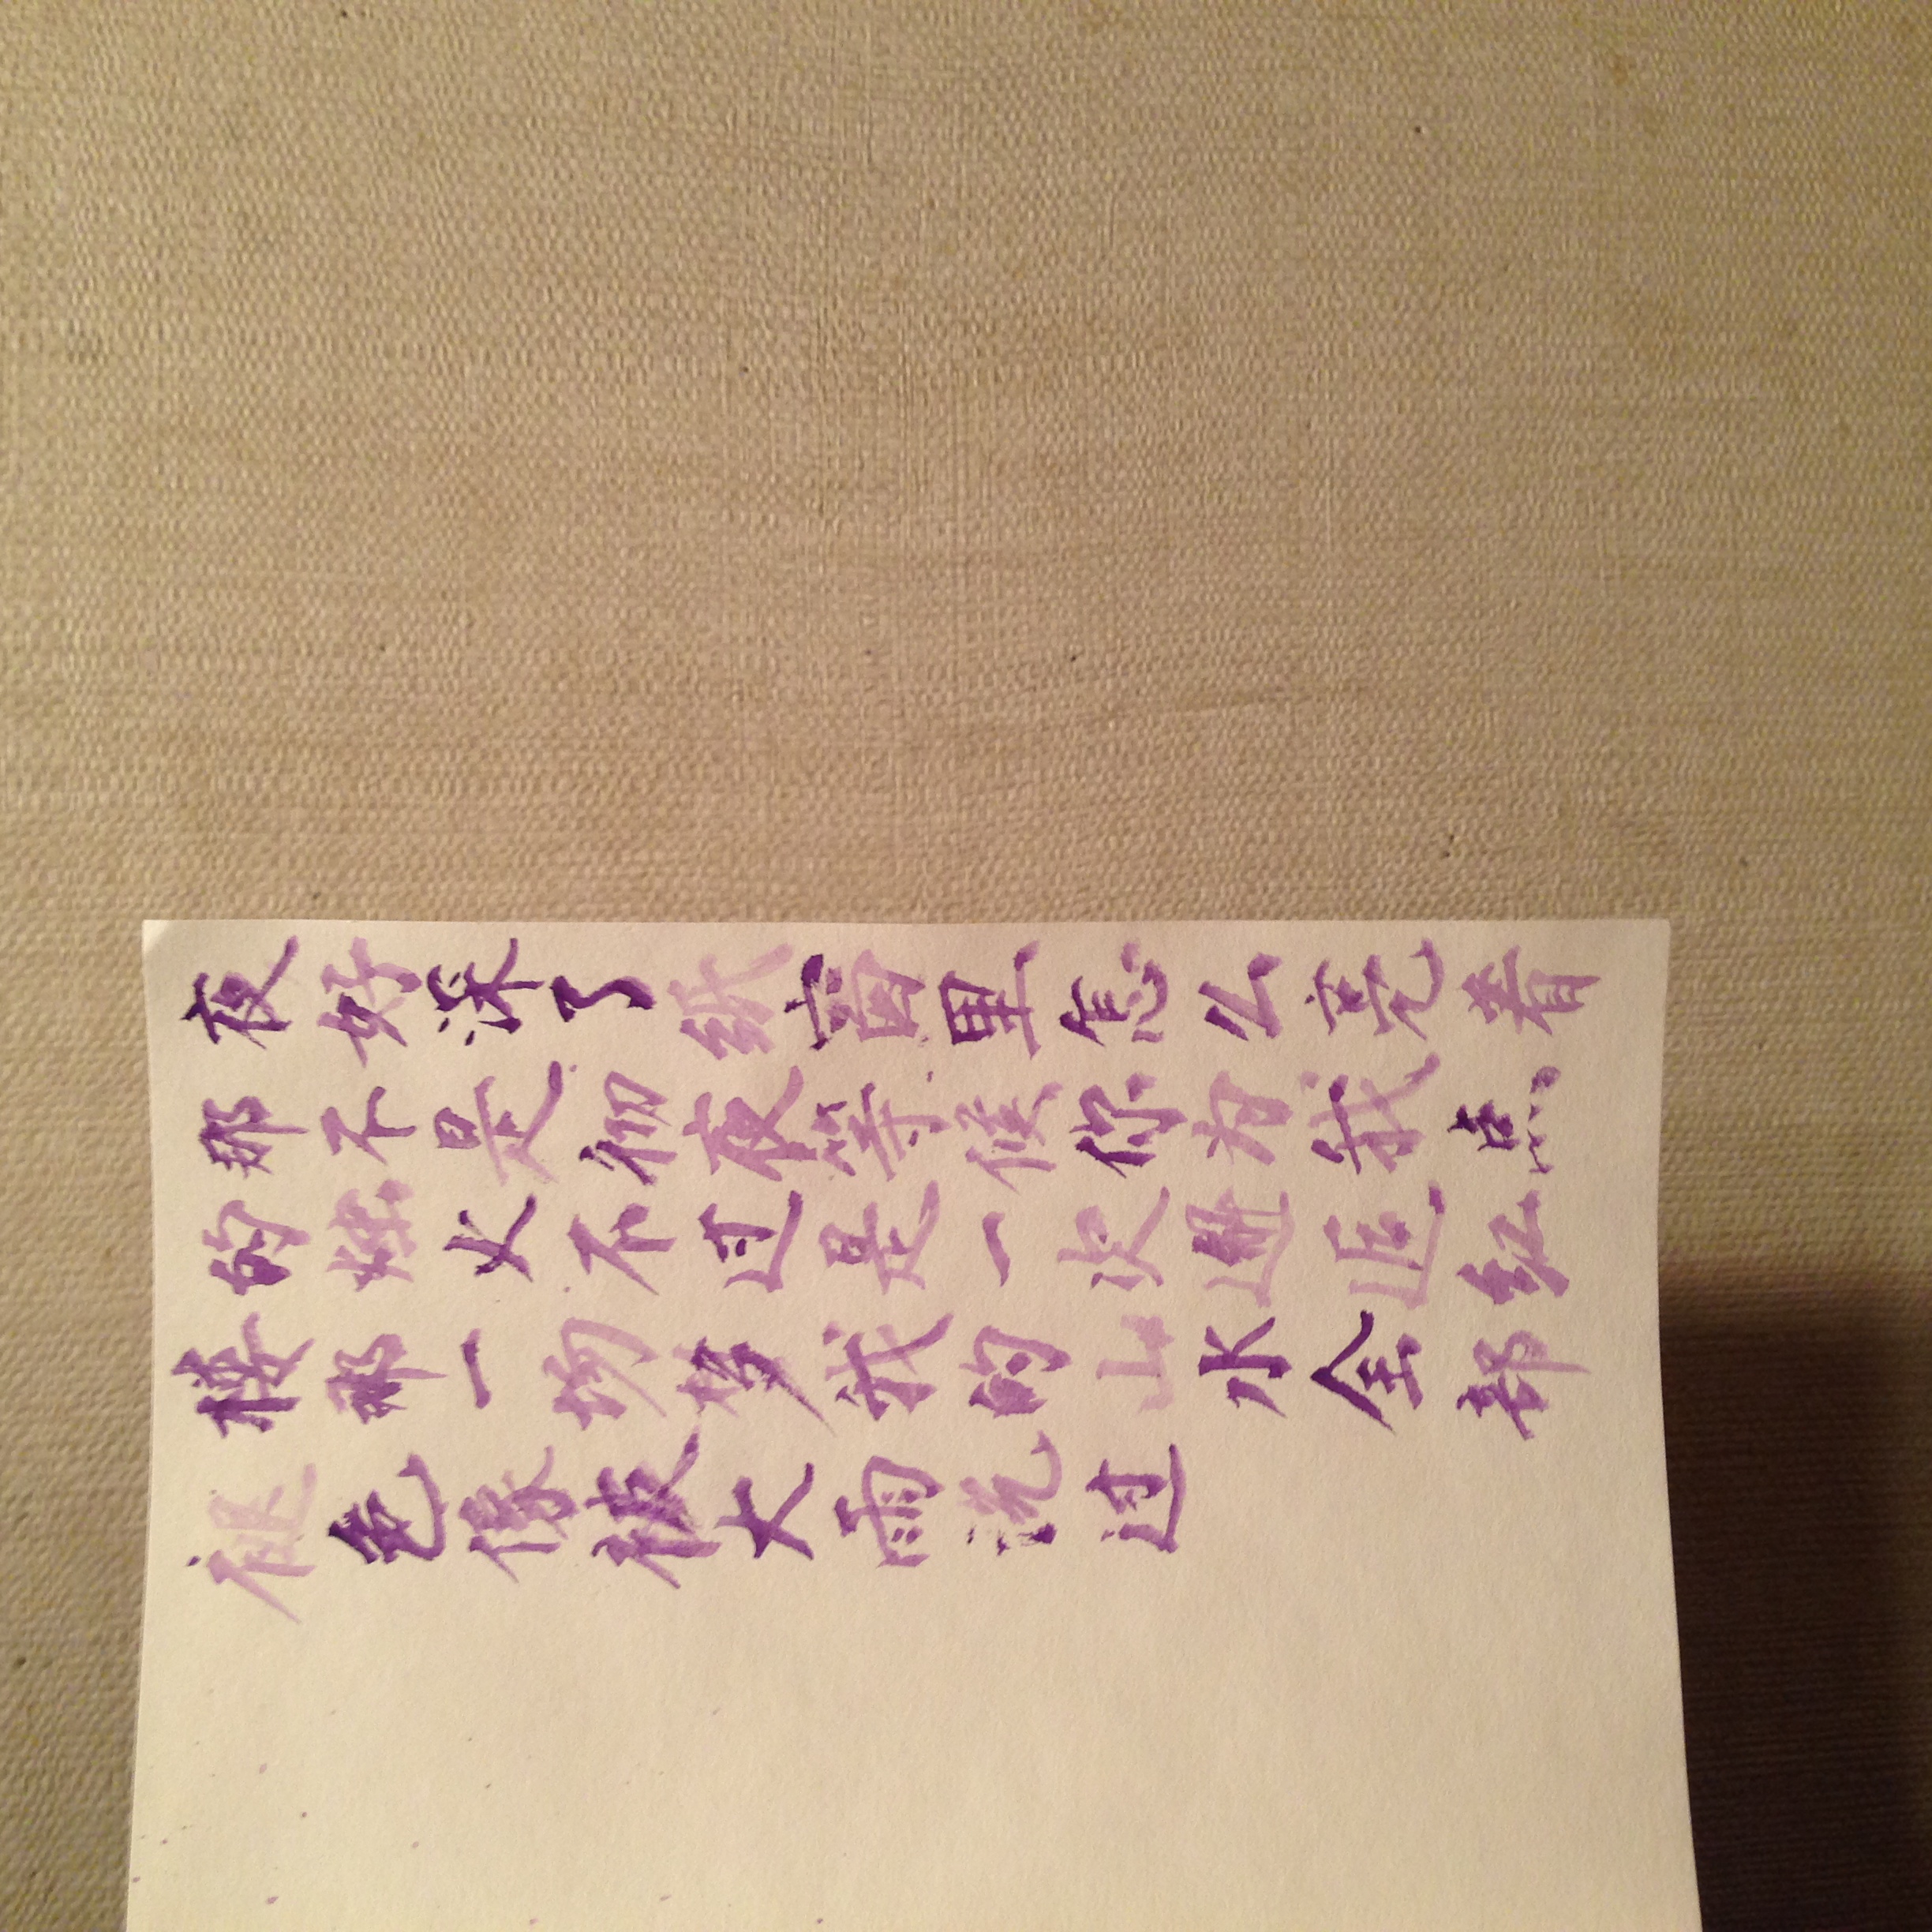 夜好深了纸窗里怎么亮着
那不是彻夜等候你为我点
的烛火不过是一次邂逅红
楼那一场梦我的山水全部
褪色像被大雨洗过